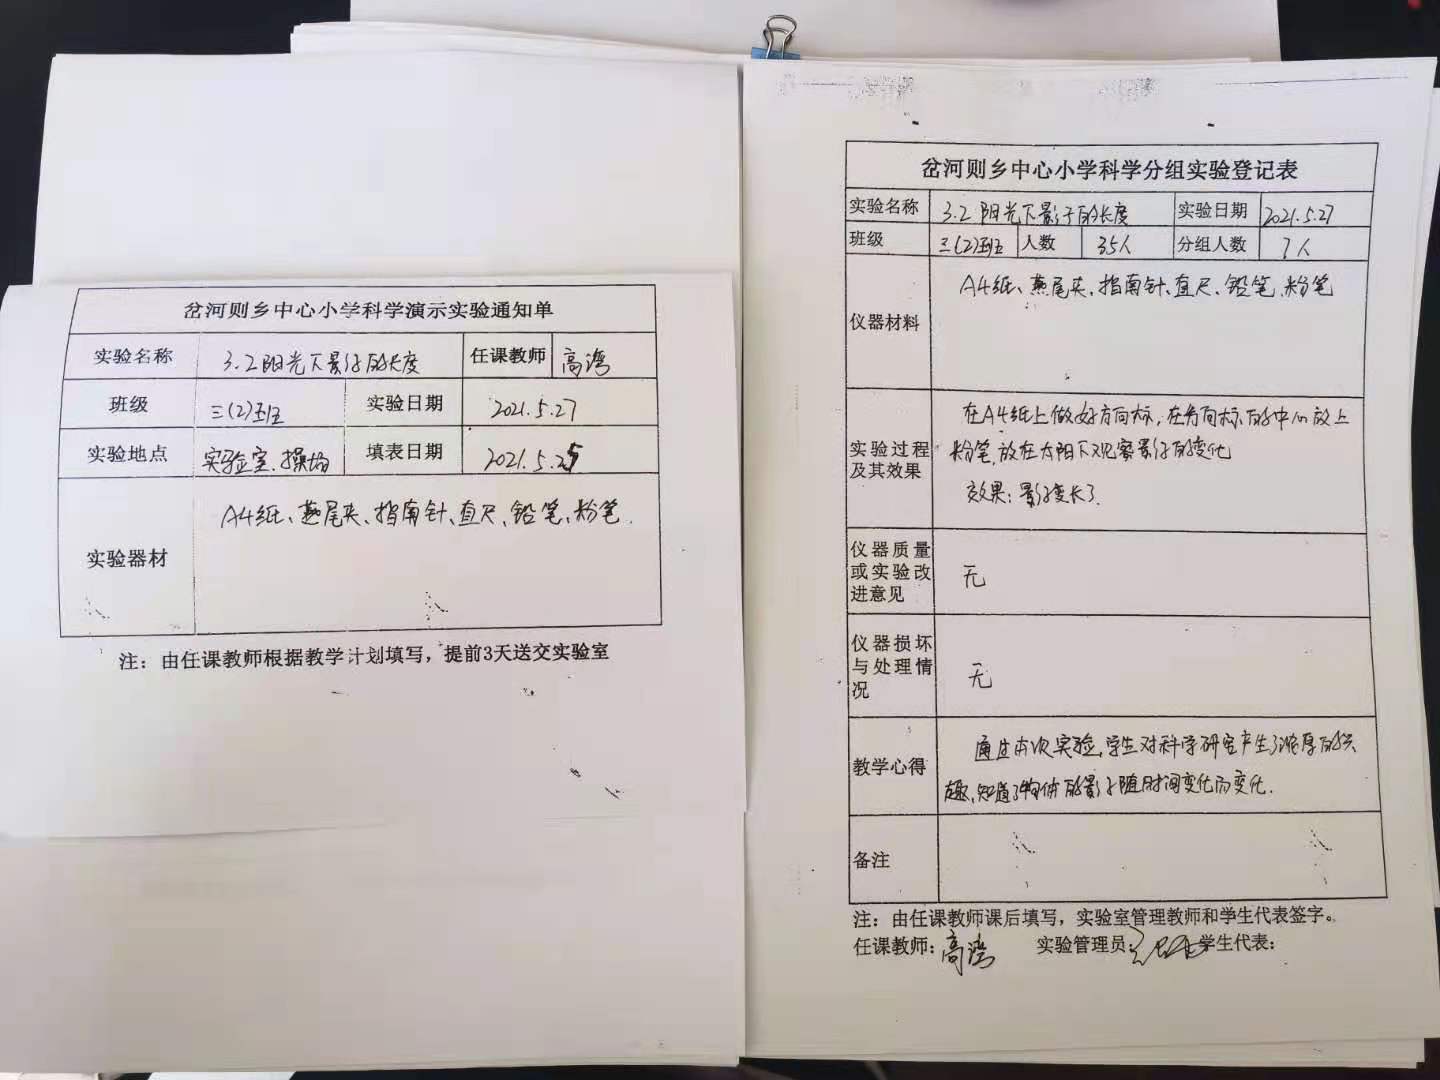 岔河则乡中心小学科学演示实验通知单
实验名称 3.2阳光下影子的长度 任课教师 高湾
班级 三(2)班 实验日期 2021.5.27
实验地点 实验室、操场 填表日期 2021.5.25
实验器材 A4纸、燕尾夹、指南针、直尺、铅笔、粉笔.
注：由任课教师根据教学计划填写，提前3天送交实验室
岔河则乡中心小学科学分组实验登记表
实验名称 3.2 阳光下影子的长度 实验日期 2021.5.27
班级 三(2)班 人数 35人 分组人数 7人
仪器材料 A4纸、燕尾夹、指南针、直尺、铅笔、粉笔
实验过程及其效果
在A4纸上做好方向标，在方向标的中心放上
粉笔，放在太阳下观察影子的变化
效果：影子变长了.
仪器质量或实验改进意见 无
仪器损坏与处理情况 无
教学心得
通过本次实验，学生对科学研究产生了浓厚的兴
趣，知道了物体的影子随时间变化而变化.
备注
注：由任课教师课后填写，实验室管理教师和学生代表签字。
任课教师：高湾 实验管理员： 学生代表：